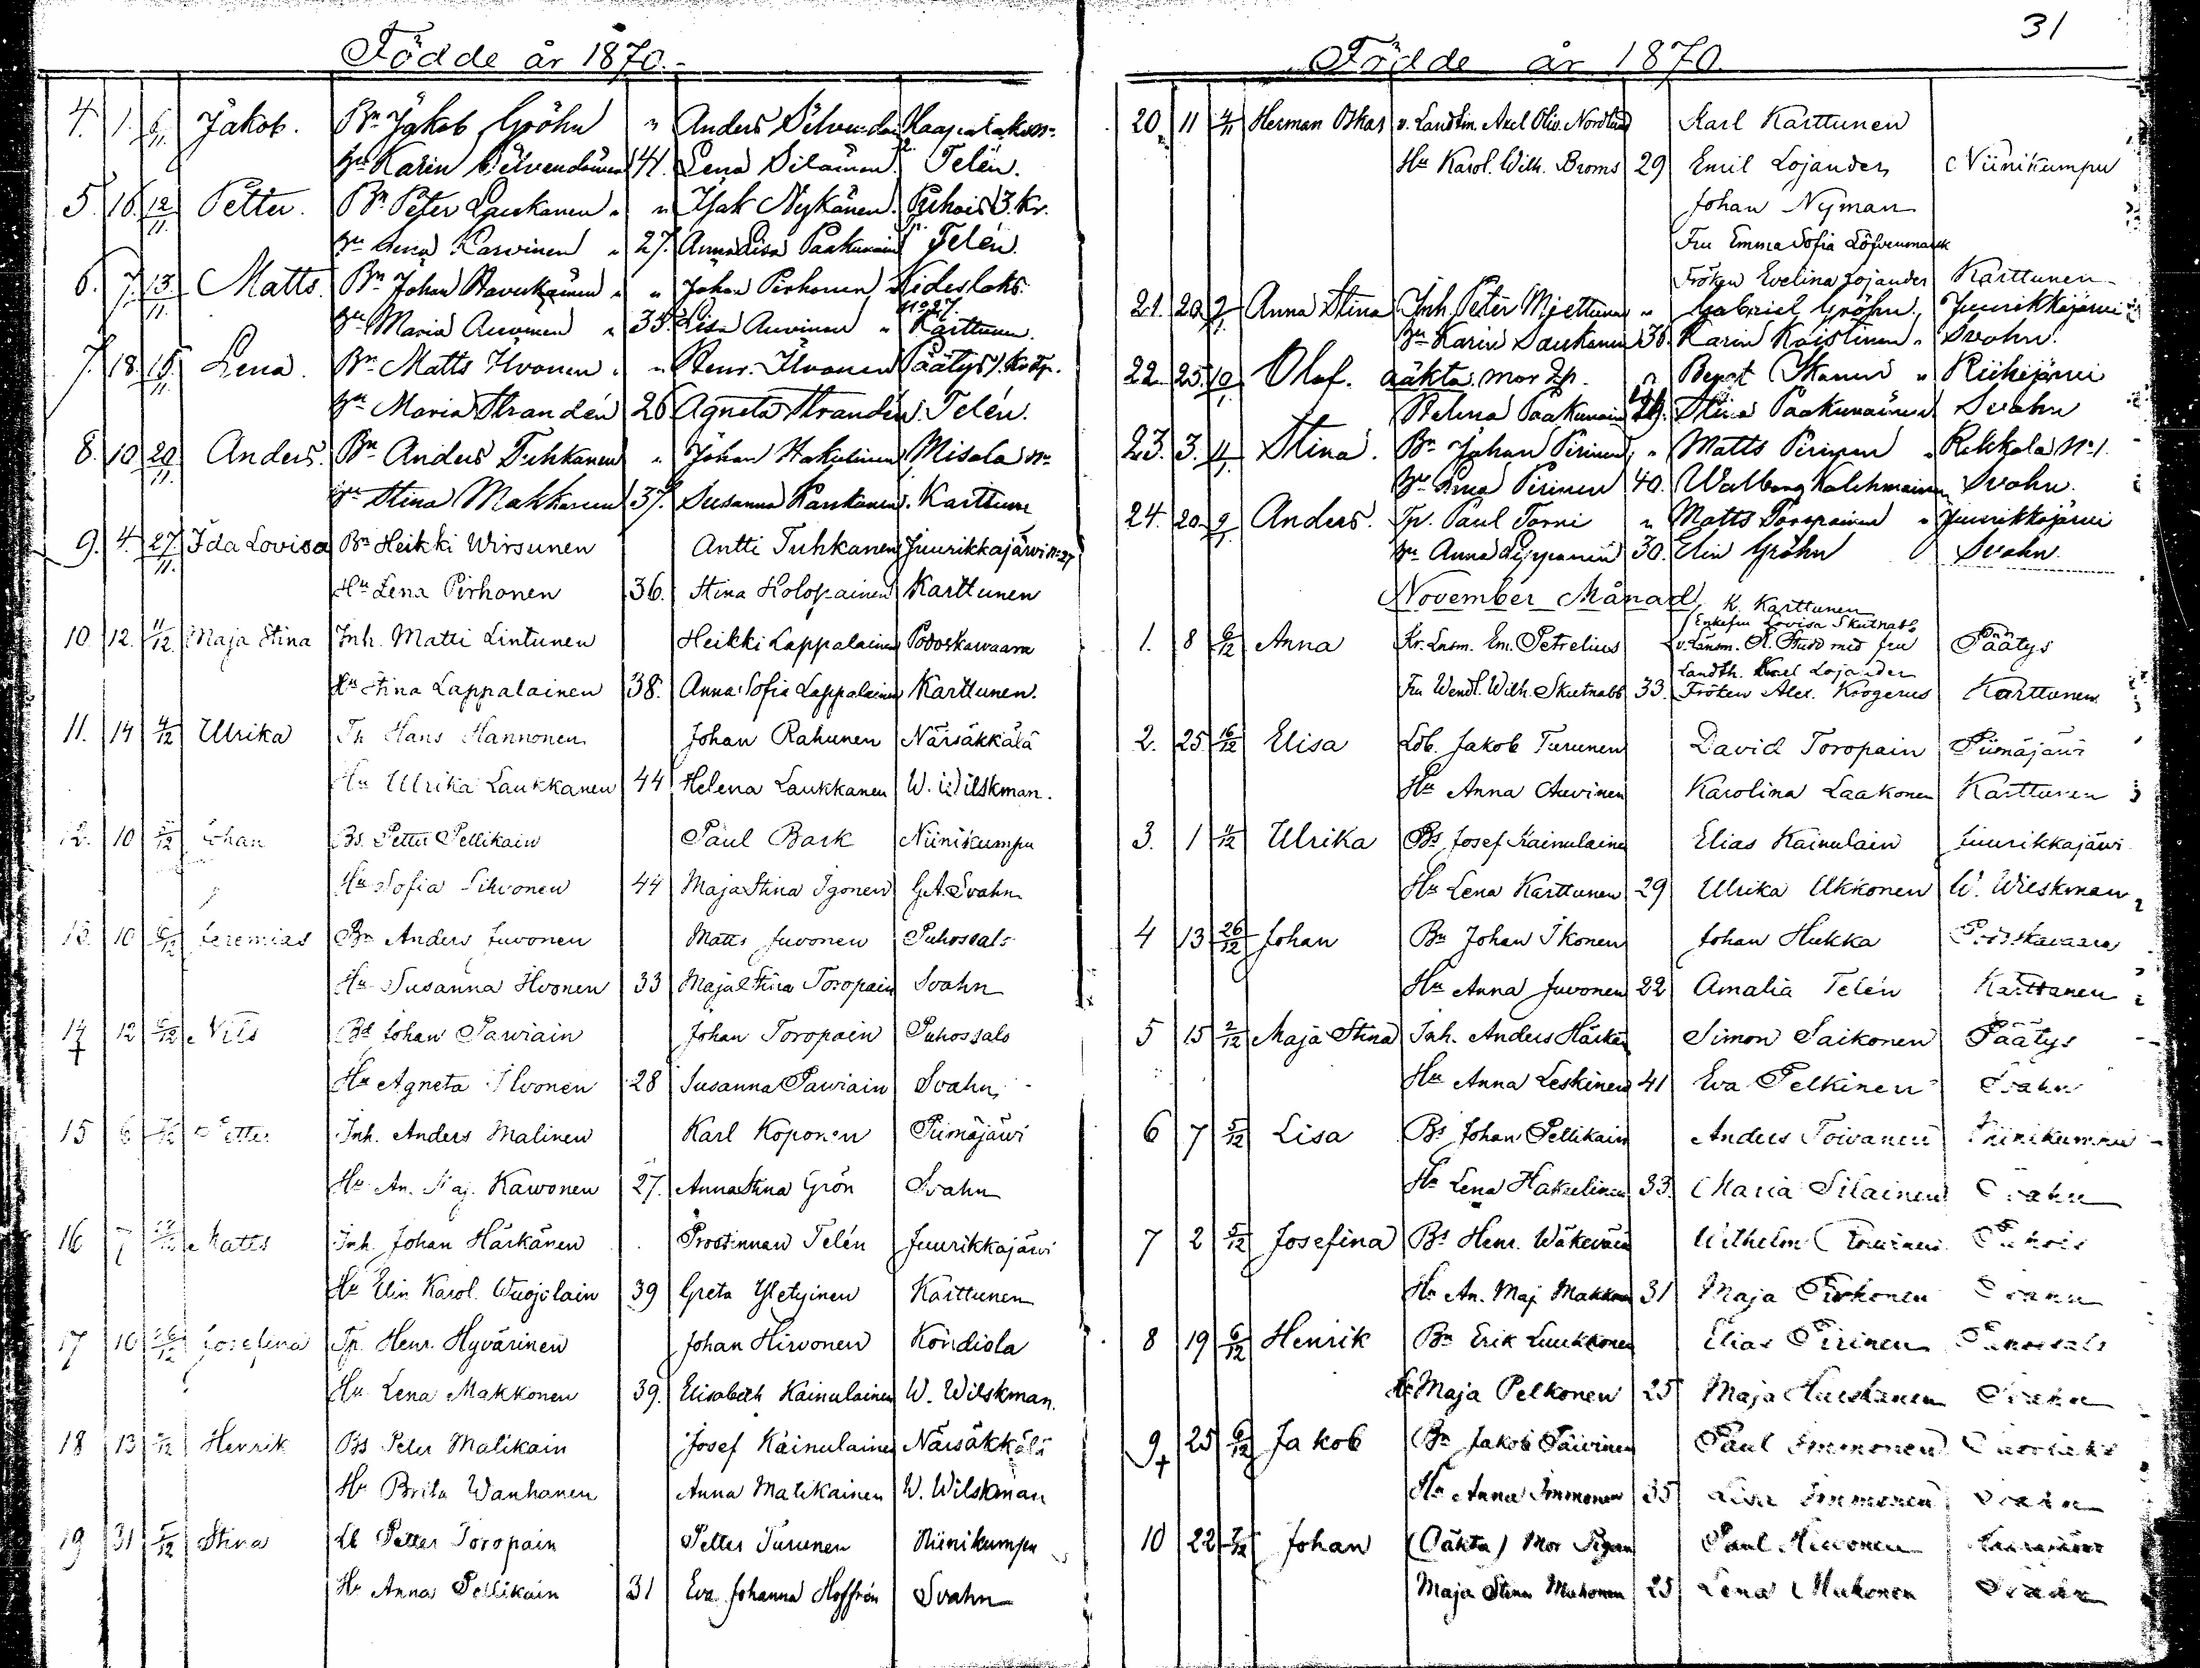 Födde år 1870.-
4. 1. 6/11. Jakob. Bn Jakob Gröhn " Anders Silvendoin Haapalaks
Hu Karin Silvendoinen 41. Lena Silainen. Telén.
5. 16. 12/11. Petter. Bn Peter Laukanen " " Isak Nykänen. Puhois 3. Kr.
Hu Lena Karvinen " 27. Anna Lisa Paakunain Telén.
6. 7. 13/11. Matts. Bn Johan " " Johan Pirhonen Kideslaks.
No 27
Hu Maria Auvinen " 35. Lisa Auvinen " Karttunen.
7. 18. 15/11. Lena. Bn Matts Ihvonen " " Henr. Ihvonen Päätys
Hu Maria Strandén 26 Agneta Strandén. Telén.
8. 10 20/11. Anders. Bn Anders Tuhkanen " Johan Hakulinen Misola No
Hu Stina Makkonen 37. Susanna Kankanen. Karttunen
9. 4. 27/11. Ida Lovisa Bn Heikki Wirsunen Antti Tuhkanen Juurikkajärvi No 27
Hu Lena Pirhonen 36. Stina Holopainen Karttunen
10. 12. 11/12 Maja Stina Inh. Matti Lintunen Heikki Lappalainen Podoskawaara
Hu Stina Lappalainen 38. Anna Sofia Lappalainen Karttunen.
11. 14 4/12 Ulrika Th Hans Hannonen Johan Rahunen Närsäkkälä
Hu Ulrika Laukkanen 44 Helena Laukkanen W. Wilskman.
12. 10 Johan Bs. Petter Pellikain Paul Bask Niinikumpu
Hu Sofia Sihvonen 44 Maja Stina Igonen G.A. Svahn
13. 10 Jeremias Bn Anders Juvonen Matts Juvonen Puhossalo
Hu Susanna Ihvonen 33 Maja Stina Toropain Svahn
14 12 Nils Bs Johan Parviain Johan Toropain Puhossalo
+
Hu Agneta Ihvonen 28 Susanna Parviain Svahn
15 6 Petter Inh. Anders Malinen Karl Koponen Piimäjäwi
Hu An. Maj. Kawonen 27. Anna Stina Grön Svahn
16 7 Matts Inh. Johan Härkänen Prostinnan Telén Juurikkajäwi
Hu Elin Karol. Wuojolain 39 Greta Yletyinen Karttunen
17 10 Josefina Tp. Henr. Hyvärinen Johan Hirvonen Kondiola
Hu Lena Makkonen 39. Elisabeth Kainulainen W. Wilskman.
18 13 Henrik Bs Peter Malikain Josef Kainulainen Närsäkkälä
Hu Brita Wanhanen Anna Matikainen W. Wilskman
19 31 Stina Lb Petter Toropain Petter Turunen Niinikumpu
Hu Anna Pellikain 31 Eva Johanna Hoffrén Svahn
31
Födde år 1870.
20 11 4/11 Herman Oskar v. Landtm. Axel Oliv. Nordlund Karl Karttunen
Hu Karol. Wilh. Broms 29 Emil Lojander Niinikumpu
Johan Nyman
Fru Emma Sofia Löfvenmark
Fröken Evelina Lojander Karttunen
21. 20 Anna Stina Inh Peter Miettunen " Gabriel Gröhn. Juurikkajärvi
Hu Karin Laukanen 36. Karin Koistinen " Svahn.
22. 25. Olof. oäkta. mor Tp. " Bengt Ikonen " Riihijärvi
Helena Paakunainen Stina Paakunainen Svahn
23. 3. Stina. Bn Johan Pirinen " Matts Pirinen " Rekkala No 1.
Hu Lena Pirinen 40. Walborg Kolehmainen Svahn.
24. 20. Anders. Tp. Paul Torni " Matts Toropainen " Juurikkajärvi
Hu Anna 30. Elin Gröhn Svahn.
November Månad
K. Karttunen
Enkefru Lovisa Skutnabb
1. 8 6/12 Anna Kr. Lnsm. Em. Petrelius v. Länsm. A. Studd med fru Päätys
Landth. Karl Lojander
Fru Wendl. Wilh. Skutnabb 33. Fröken Alex. Krogerus Karttunen
2. 25 16/12 Elisa Löb. Jakob Turunen David Toropain Piimäjäwi
Hu Anna Auvinen Karolina Laakonen Karttunen
3. 1 4/12 Ulrika Bs Josef Kainulainen Elias Kainulain Juurikkajäwi
Hu Lena Karttunen 29 Ulrika Ukkonen W. Wilskman
4 13 26/12 Johan Bn Johan Ikonen Johan Hukka Podoskavaara
Hu Anna Juvonen 22 Amalia Telén Karttunen
5 15 2/12 Maja Stina Inh. Anders Härkän Simon Saikonen Päätys
Hu Anna Leskinen 41 Eva Pelkinen Svahn
6 7 5/12 Lisa Bs Johan Pellikain Anders Toivanen Niinikumpu
Hu Lena Hakulinen 33. Maria Silainen Svahn
7 2 5/12 Josefina Bs Henr. Wäkeväin Wilhelm Puhois
Hu An. Maj Makkon 31 Maja Pirhonen Svahn
8 19 6/12 Henrik Bn Erik Luukkonen Elias Pirinen Puhossalo
Hu Maja Pelkonen 25 Maja Svahn
9 25 6/12 Jakob Bn Jakob Päivinen Paul Immonen
+
Hu Anna Immonen 35 Lisa Immonen Svahn
10 22 Johan (Oäkta) Mor Pigan Paul
Maja Stina Muhonen 25 Lena Muhonen Svahn